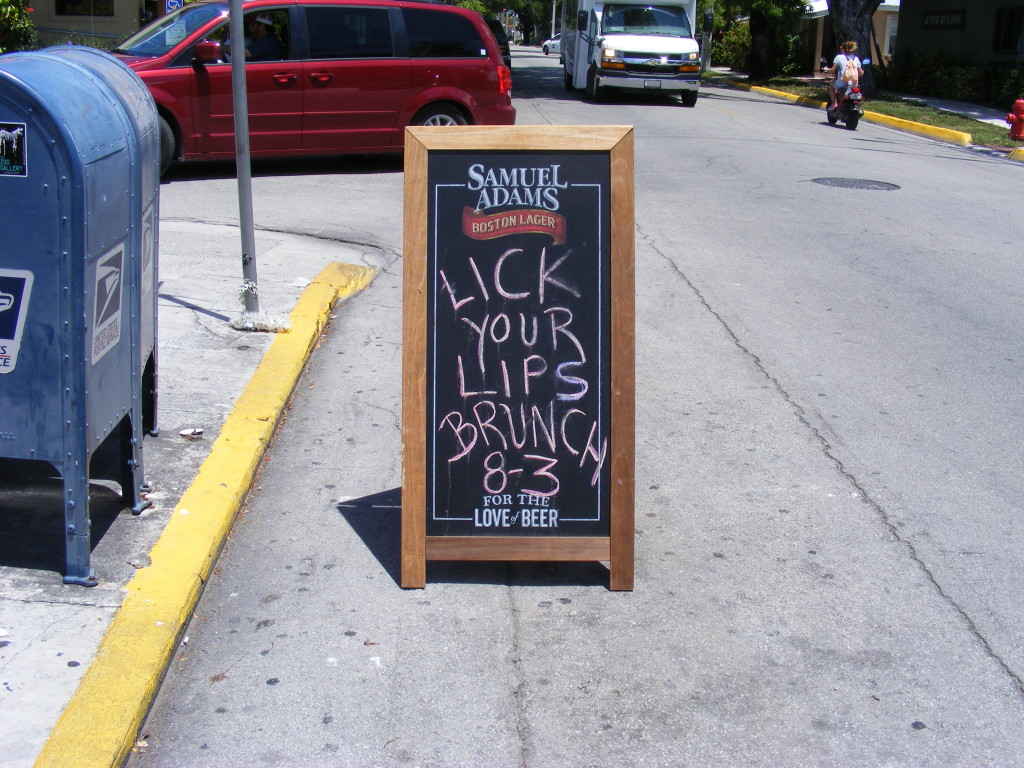 SAMUEL
ADAMS
BOSTON LAGER
LICK
YOUR
LIPS
BRUNCH
8-3
FOR THE
LOVE of BEER